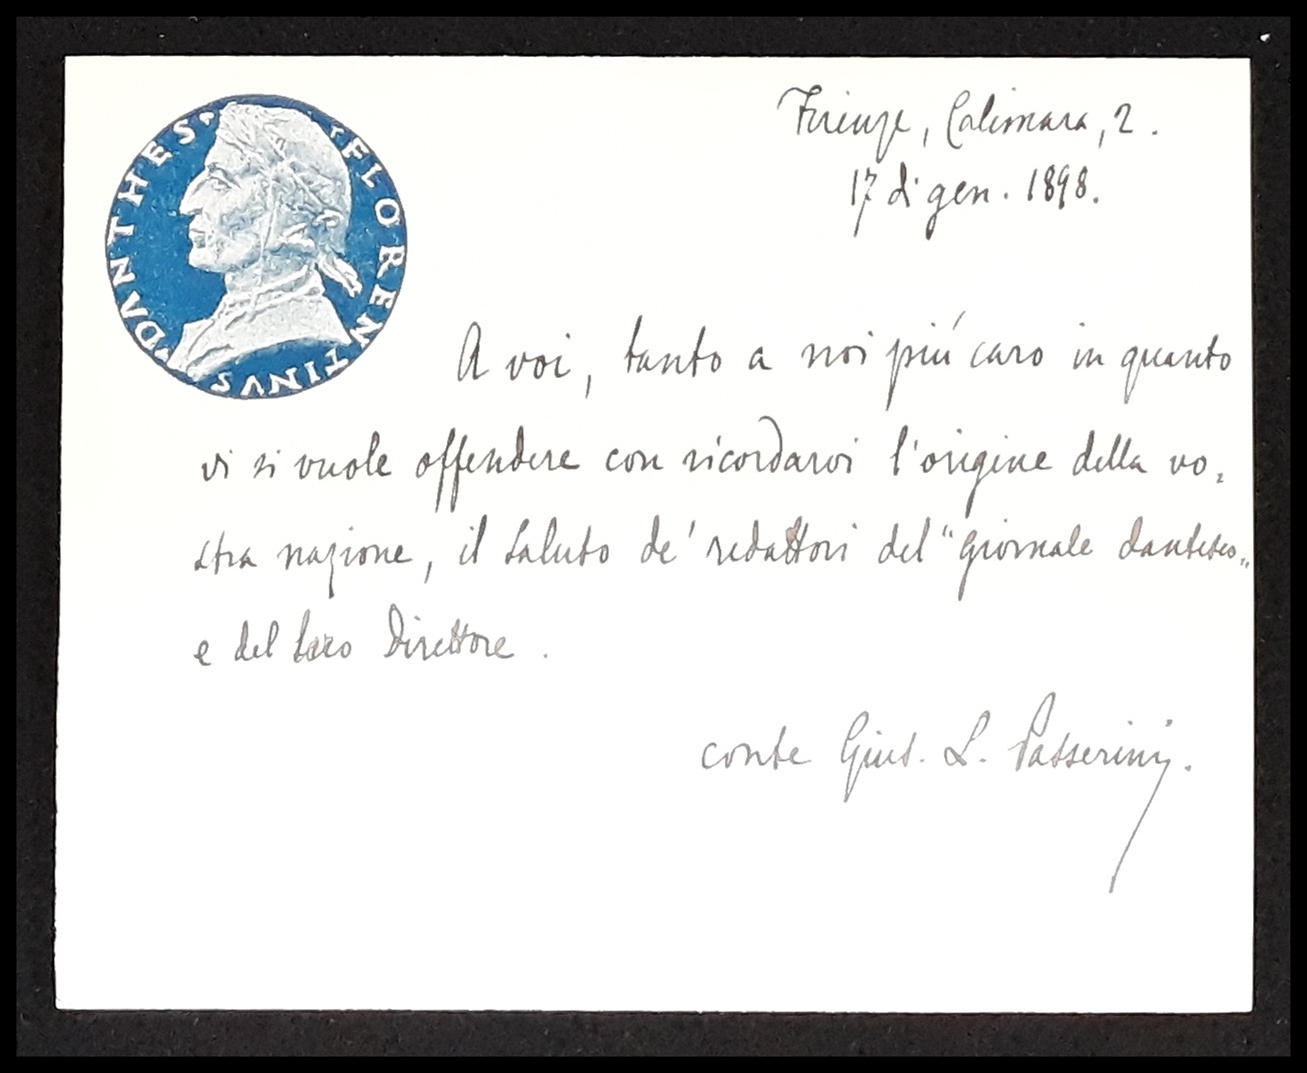 DANTHES FLORENTINVS
Firenze, Calimara, 2.
17 di gen. 1898.
A voi, tanto a noi più caro in quanto
vi si vuole offendere con ricordarvi l'origine della vo-
stra nazione, il saluto de' redattori del "Giornale dantesco„
e del loro Direttore.
conte Gius. L. Passerini.